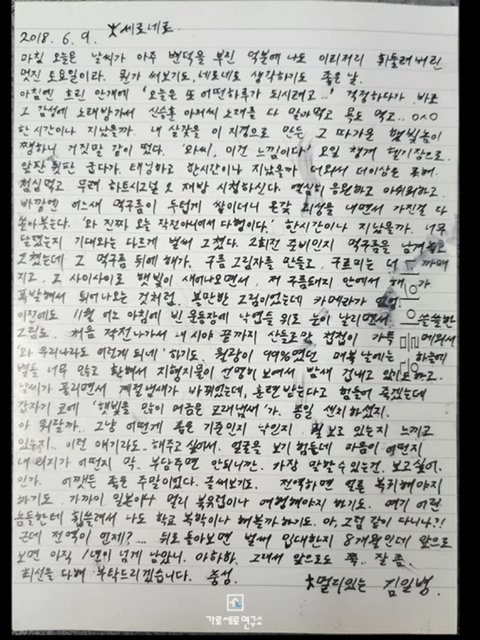 2018. 6. 9. ☆세로네로
마침 오늘은 날씨가 아주 변덕을 부린 덕분에 나도 이리저리 휘둘려버린
멋진 토요일이라. 뭔가 써보기도, 세로네로 생각하기도 좋은 날.
아침엔 흐린 안개에 '오늘은 또 어떤하루가 되시려고...' 걱정하다가 바로
그 감성에 노래방가서 신승훈 아저씨 노래를 다 잡아먹고 욕도 먹고.. ㅇㅅㅇ
한시간이나 지났을까. 내 살갗을 이 지경으로 만든 그 따가운 햇빛놈이
쨍하니 거짓말 같이 떴다. '와씨, 이건 느낌이다!' 오일 챙겨 헬기장으로
앞판 뒷판 굽다가. 태닝하고 한시간이나 지났을까 더워서 더이상은 못해.
점심먹고 무려 하트시그널 오 재방 시청하신다. 열심히 응원하고 아쉬워하고.
바깥엔 어느새 먹구름이 두텁게 쌓이더니 온갖 괴성을 내면서 가진걸 다
쏟아붓는다. '와 진짜 오늘 작전아니어서 다행이다.' 한시간이나 지났을까. 너무
담았는지 기대와는 다르게 벌써 그쳤다. 2회전 준비인지 먹구름을 남겨놓고
그쳤는데 그 먹구름 뒤에 해가. 구름 그림자를 만들고, 구르미는 더 까매
지고, 그 사이사이로 햇빛이 새어나오면서, 저 구름뒤 안에서 해가
폭발해서 튀어나오는 것처럼. 볼만한 그림이었는데 카메라가 없
이전에도 11월 어느 아침에 빈 운동장에 낙엽들 위로 눈이 날리면서 쓸쓸한
그림도. 처음 작전나가서 내 시야 끝까지 산등로망 첩첩이 가득 메워서
'와 우리나라도 이렇게 되네' 하기도. 월광이 99%였던 매복 날에는 하늘에
별들 너무 많고 환해서 지형지물이 선명히 보여서 밤새 겁내고 있기도하고.
날씨가 풀리면서 계절냄새가 바뀌었는데, 훈련받는다고 힘들어 죽겠는데
갑자기 코에 '햇빛을 많이 머금은 모래냄새'가, 종일 센치하셨지.
아 뭐랄까. 그냥 어떻게 좋은 기준인지 낙인지. 뭘 보고 있는지 느끼고
있는지.. 이런 얘기라도.. 해주고 싶어서. 얼굴을 보기 힘들데 마음이 어떤지
내 위치가 어떤지 막. 부담주면 안되니깐. 가장 말할수 있는건. 보고싶어.
인가. 어쨌든 좋은 주말이었다. 글써보기도. 전역하면 얼른 복귀해야지
하기도. 가까이 일본이나 멀리 북유럽이나 여행해야지 하기도. 여기 어린
놈들한테 휩쓸려서 나도 학교 복학이나 해볼까하기도. 아, 그럼 같이 다니나?!
근데 전역이 언제?.... 뒤로 돌아보면 벌써 입대한지 8개월인데 앞으로
보면 아직 1년이 넘게 남았니. 아하하. 그래서 앞으로도 쭉.. 잘 좀.
최선을 다해 부탁드리겠습니다. 충성.
☆멀리있는 김일병
가로세로연구소